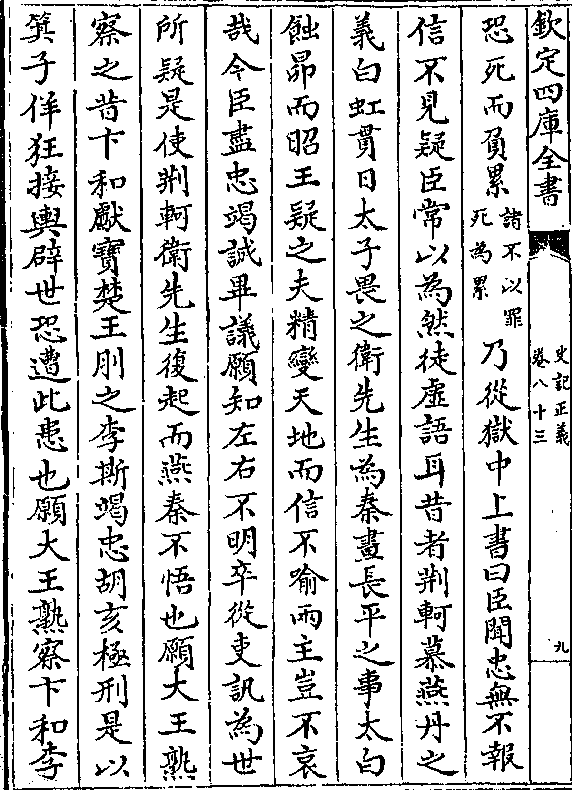 欽定四庫全書
史記正義
卷八十三
九
恐死而負累
諸不以罪
死為累
乃從獄中上書曰臣聞忠無不報
信不見疑臣常以為然徒虛語耳昔者荆軻慕燕丹之
義白虹貫日太子畏之衛先生為秦畫長平之事太白
蝕昴而昭王疑之夫精變天地而信不喻兩主豈不哀
哉今臣盡忠竭誠畢議願知左右不明卒從吏訊為世
所疑是使荆軻衛先生復起而燕秦不悟也願大王熟
察之昔卞和獻寶楚王刖之李斯竭忠胡亥極刑是以
箕子佯狂接輿辟世恐遭此患也願大王熟察卞和李